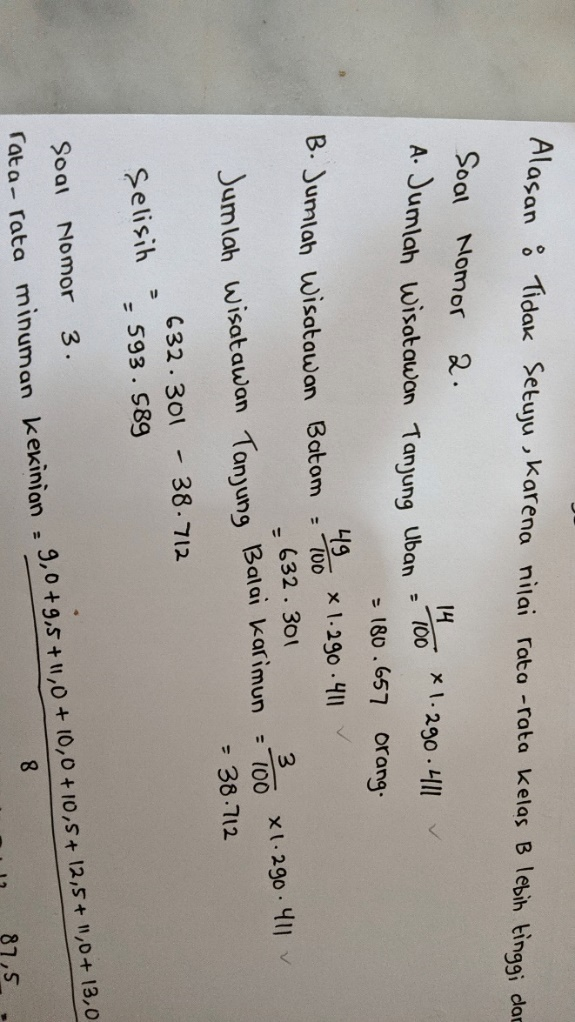 Alasan : Tidak Setuju, karena nilai rata-rata kelas B lebih tinggi dar
Soal Nomor 2.
A. Jumlah Wisatawan Tanjung Uban = 14/100 x 1.290.411 ✓
= 180.657 orang.
B. Jumlah Wisatawan Batam = 49/100 x 1.290.411 ✓
= 632.301
Jumlah Wisatawan Tanjung Balai Karimun = 3/100 x 1.290.411 ✓
= 38.712
Selisih = 632.301 - 38.712
= 593.589
Soal Nomor 3.
rata-rata minuman kekinian = 9,0 + 9,5 + 11,0 + 10,0 + 10,5 + 12,5 + 11,0 + 13,0
8
87,5 =